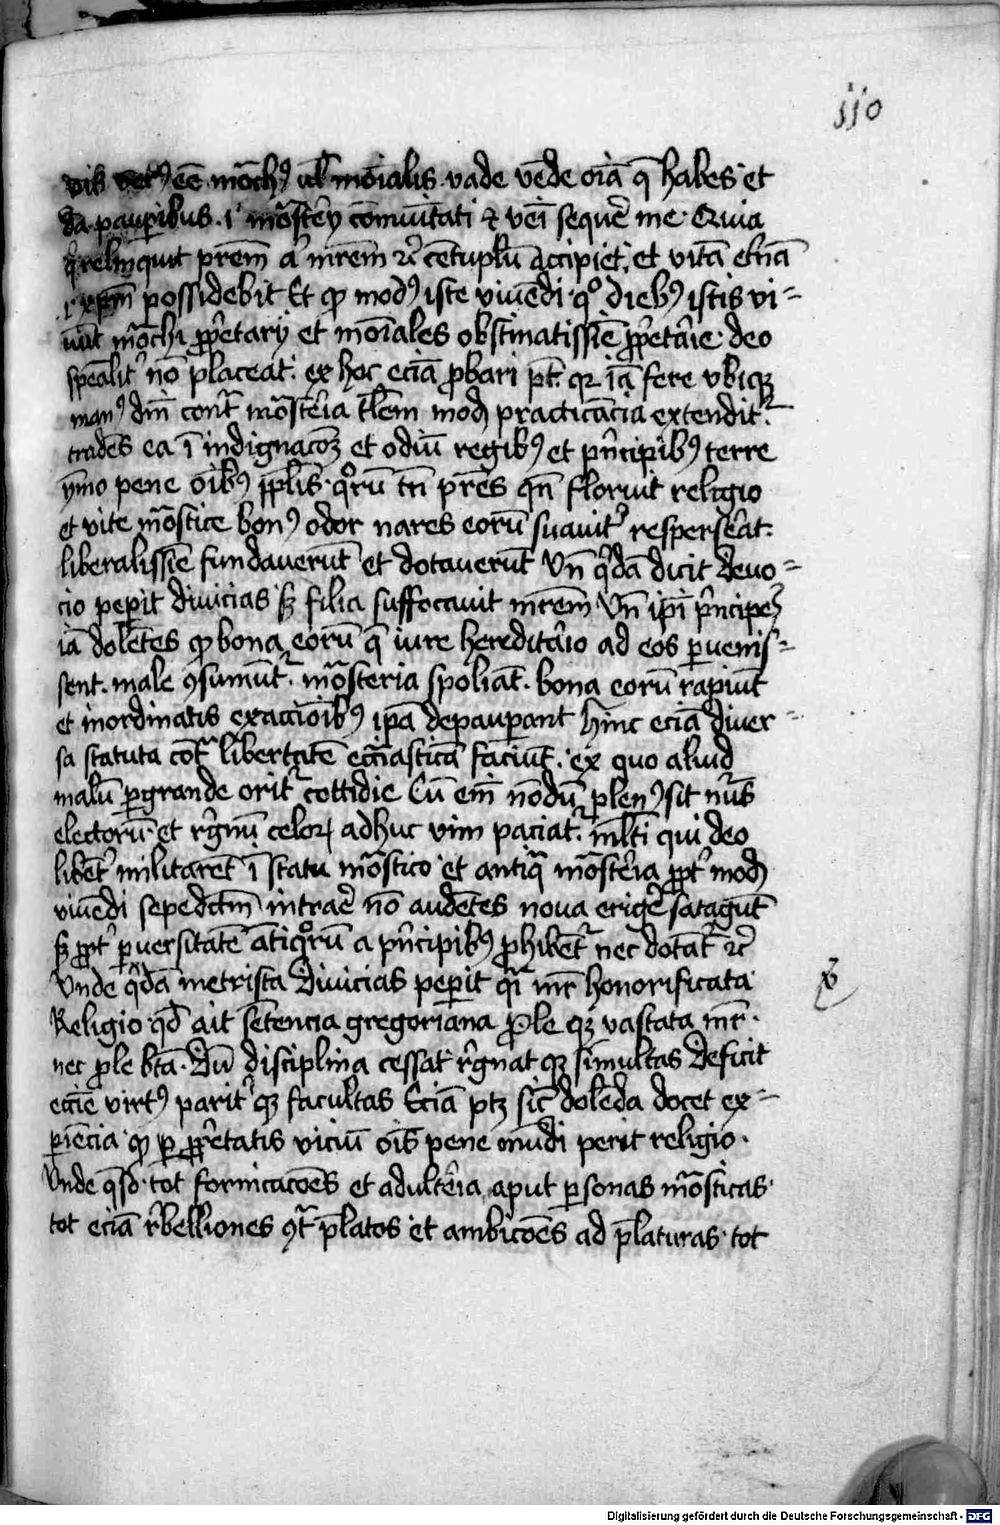 110
vis veꝰ eē mōchꝰ ul̄ moīalis vade vēde oīa q̄ habes et
da pauꝑibus .i. mōstēy com̄uītati ⁊ veī sequē me Quia
q̇ relinquit prēm a̅ mrēm ⁊c̄ cētuplū accipiet et vitā et̄nā
possidebit Et ꝙ modꝰ iste viuēdi qͦ diebꝰ istis vi-
uūt mōchi ꝓp̄etarij et moīales obstinatissīe ꝓp̄etāie deo
spēalit̄ nō placeat ex hoc eciā ꝓbari pt̄ qꝛ iā fere vbiqꝫ
manꝰ dn̄i cont̄ mōstēia t̄lem mod̄ practicācia extendit᷑
tradēs ea ī indignacōꝫ et odiū regibꝰ et pn̄cipibꝰ terre
ymo pene oībꝰ pp̄lis qͦrū tn̄ prēs qn̄ floruit religio
et vite mōstice bonꝰ odor nares eorū suauit̄ resperserāt
liberalissīe fundauerūt et dotauerūt Vn̄ q̇dā dicit deuo-
cio peꝑit diuicias sꝫ filia suffocauit mrēm Vn̄ ipī pn̄cipes
iā dolētes ꝙ bona eorū q̄ iure hereditāio ad eos ꝑuenis-
sent male ꝯsumūt᷑ mōsteria spoliāt bona eorū rapiūt
et inordinatis exaccioībꝰ ipā depauꝑant Hinc eciā diuer-
sa statuta cōt̄ libertatē ecc̄iasticā faciūt ex quo aliud
malū ꝑgrande orit᷑ cottidie Cū em̄ nōdū plenꝰ sit nūs
electorū et r̄gnū celoꝝ adhuc vim paciat᷑ ml̄ti qui deo
libēt̄ militarēt ī statu mōstico et antiq̄ mōstēia ꝓpt̄ mod̄
viuēdi sepedc̄m intraē nō audētes noua erigē satagūt
sꝫ ꝓpt̄ ꝑuersitatē ātiqͦrū a pn̄cipibꝰ ꝓhibēt᷑ nec dotāt᷑ ⁊c̄
Vnde q̇dā metrista Diuicias peꝑit q̇ mr̄ honorificata
Religio qd̄ ait sētencia gregoriana ꝓle qꝫ vastata mr̄
nec ꝓle btā Dū disciplina cessat r̄gnat qꝫ simultas Deficit
ecc̄ie virtꝰ parit̄ qꝫ facultas Eciā ptꝫ sic̄ dolēda docet ex-
ꝑiēcia ꝙ ꝑ ꝓp̄etatis viciū oīs pene mūdi perit religio
Vnde q̄so tot fornicacōes et adultēia aput ꝑsonas mōsticas
tot eciā r̄belliones ꝯt̄ p̄latos et ambicōes ad p̄laturas tot
Digitalisierung gefördert durch die Deutsche Forschungsgemeinschaft - DFG